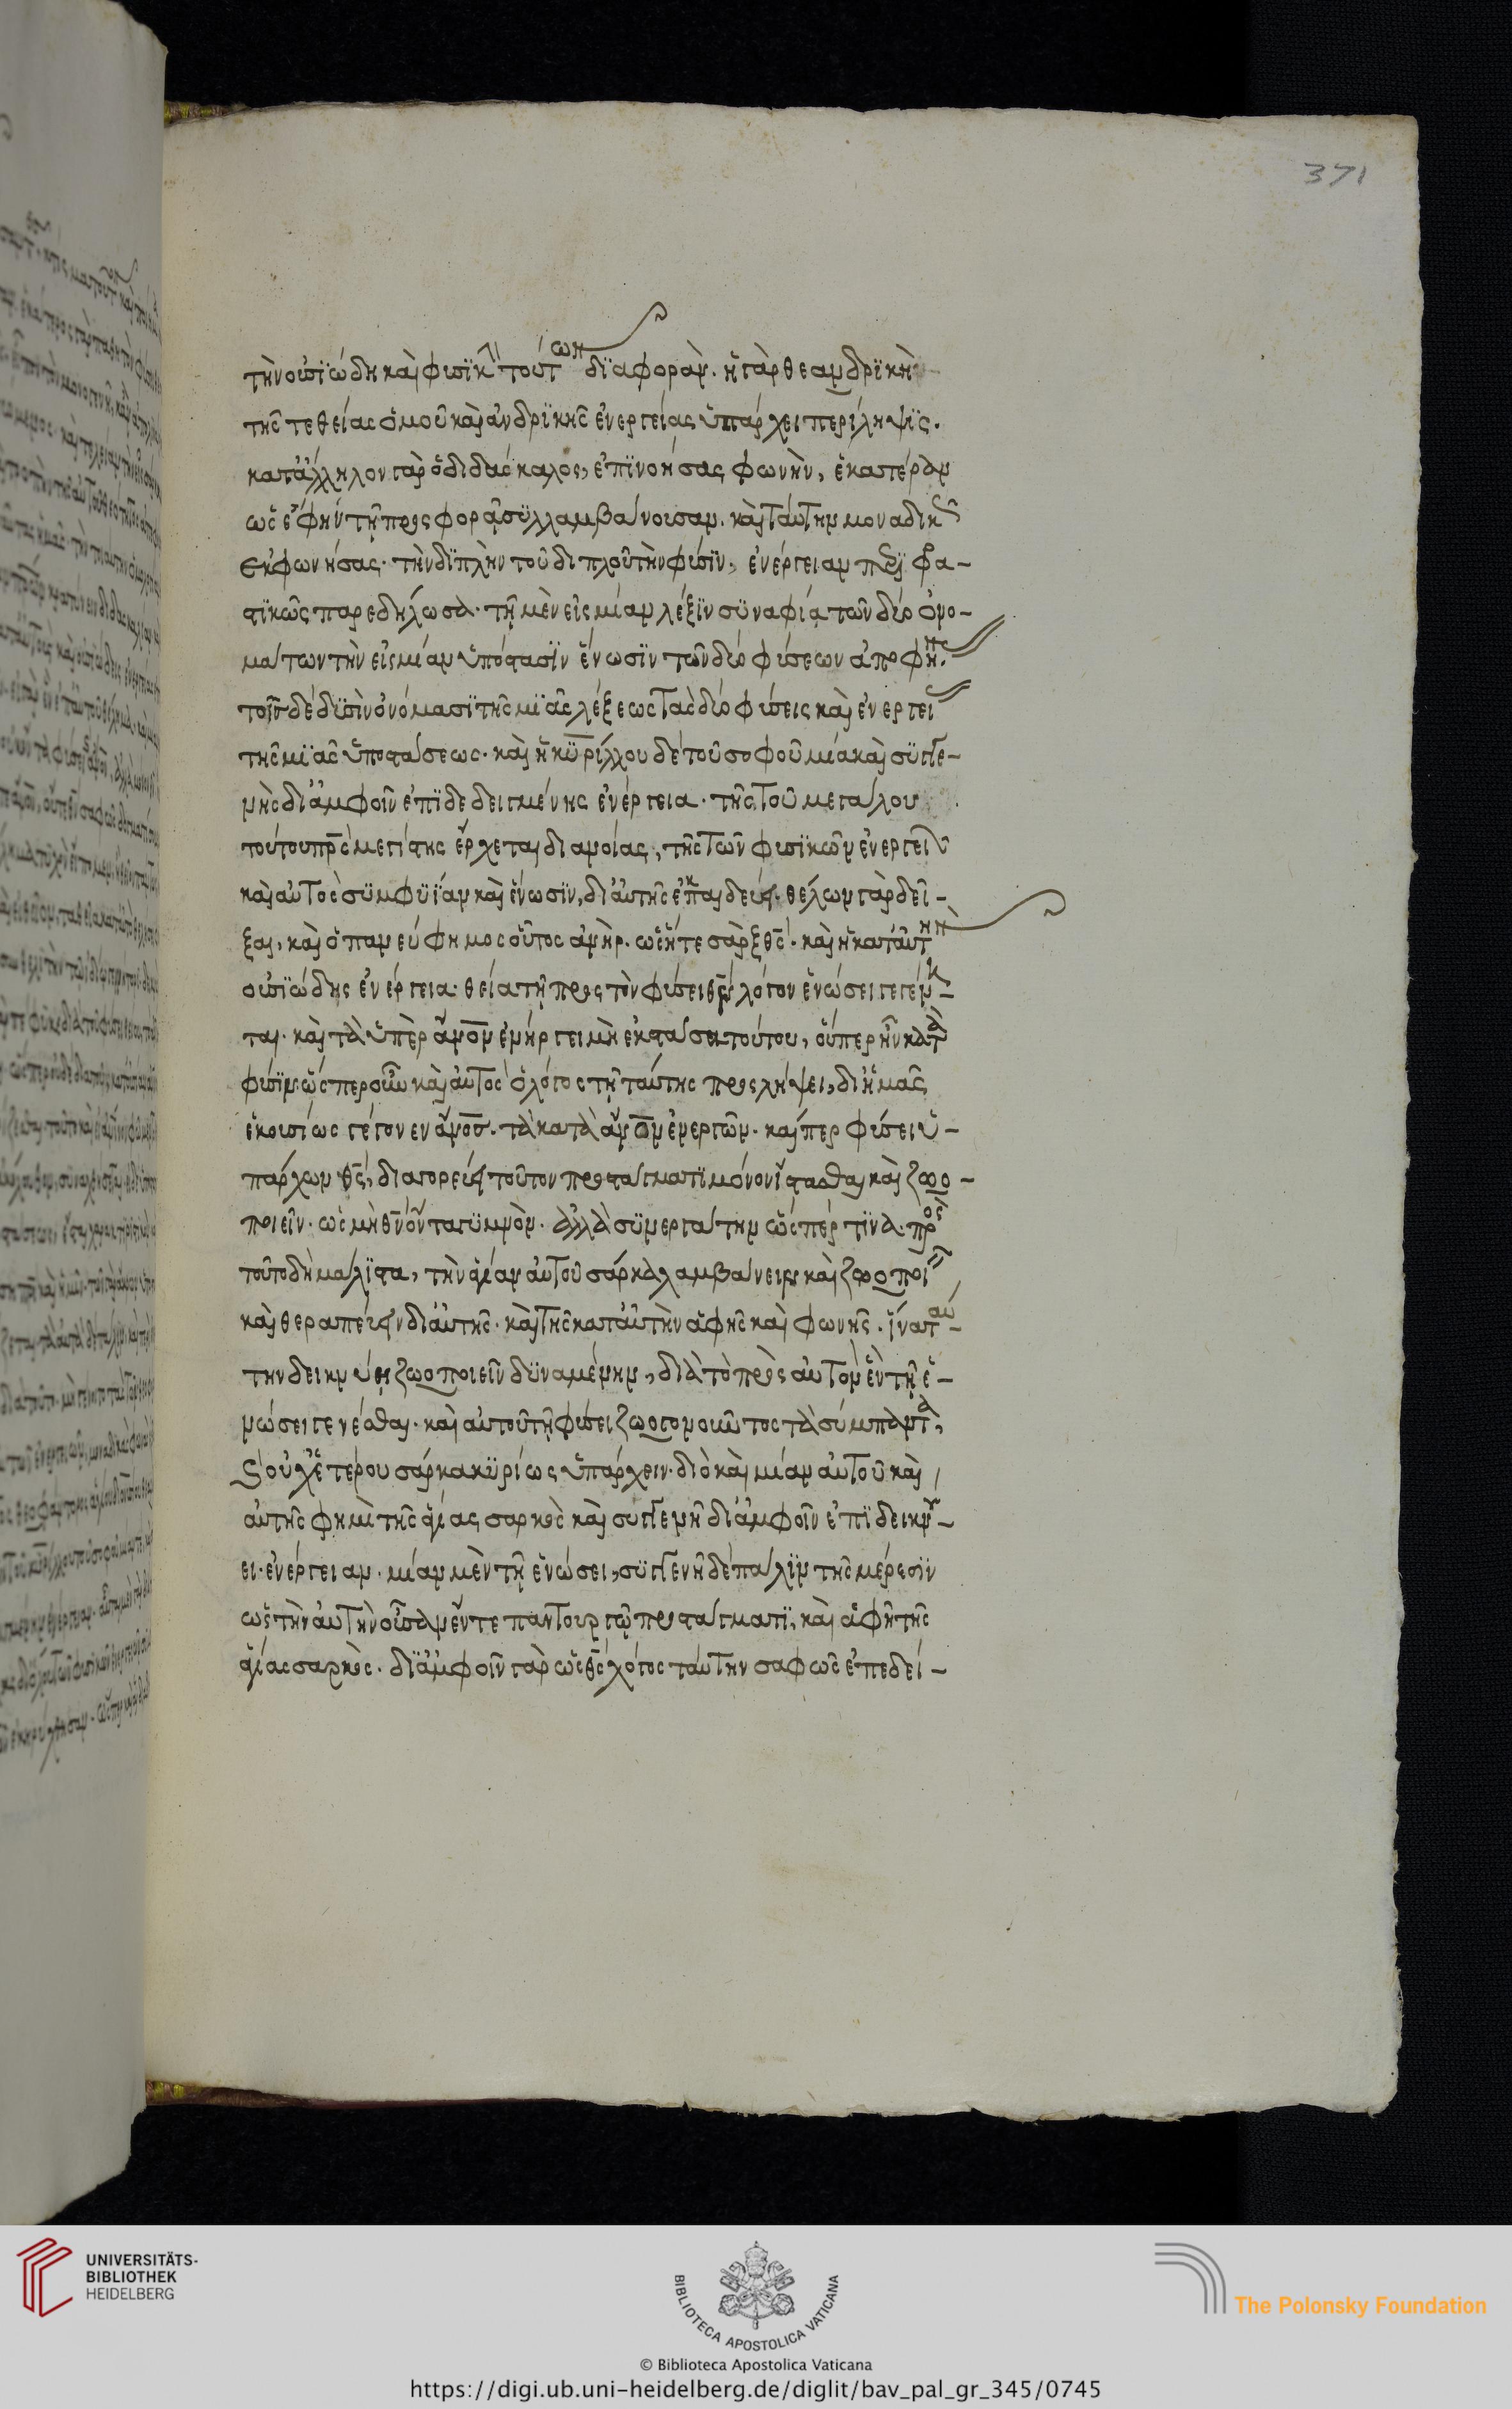 371
τὴν οὐσϊώδη καὶ φυσϊκὴν τούτων δϊαφοράν. ἡ γὰρ θεανδρϊκὴ
τῆς τε θείας ὁμοῦ καὶ ἀνδρϊκῆς ἐνεργείας ὑπάρχει περίληψϊς.
κατάλληλον γὰρ ὁ διδάσκαλος, ἐπϊνοήσας φωνὴν, ἑκατέραν
ὡς ἔφην τῇ προσφορᾷ συλλαμβάνουσαν. καὶ ταύτην μοναδικῶς
ἐκφωνήσας. τὴν διπλῆν τοῦ διπλοῦ τὴν φύσϊν, ἐνέργειαν περιφα-
στϊκῶς παρεδήλωσα. τῇ μὲν εἰς μίαν λέξϊν συναφίᾳ τῶν δύο ὀνο-
μάτων τὴν εἰς μίαν ὑπόστασϊν ἕνωσϊν τῶν δύο φύσεων ἀποφήνας.
τοῖς δὲ δυσὶν ὀνόμασϊ τῆς μϊᾶς λέξεως τὰς δύο φύσεις καὶ ἐνεργείας
τῆς μϊᾶς ὑποστάσεως. καὶ ἡ κυρίλλου δὲ τοῦ σοφοῦ μία καὶ συγγε-
νὴς δι' ἀμφοῖν ἐπϊδεδειγμένης ἐνέργεια. τῆς τοῦ μεγάλου
τούτου πρὸς μεγίστης ἔρχεται διανοίας, τῆς τῶν φυσϊκῶν ἐνεργειῶν
καὶ αὐτὸς συμφυΐαν καὶ ἕνωσϊν, δι' αὐτῆς ἐκπαιδεύων. θέλων γὰρ δεῖ-
ξαι, καὶ ὁ πανεύφημος οὗτος ἀνήρ. ὡς ἥτε σὰρξ θεός. καὶ ἡ κατ' αὐτὴν
οὐσϊώδης ἐνέργεια. θεία τῇ πρὸς τὸν φύσει θεὸν λόγον ἑνώσει γεγένη-
ται. καὶ τὰ ὑπὲρ ἄνθρωπον ἐνήργει μὴ ἐκστᾶσα τούτου, οὗπερ ἦν κατὰ
φύσϊν. ὥσπερ οὖν καὶ αὐτὸς ὁ λόγος τῇ ταύτης προσλήψει, δι' ἡμᾶς
ἑκουσίως γέγονεν ἄνθρωπος. τὰ κατὰ ἄνθρωπον ἐνεργῶν. καίπερ φύσει ὑ-
πάρχων θεός, διαγορεύει τοῦτον προστάγματϊ μόνον ἵστασθαι καὶ ζωο-
ποιεῖν. ὡς μὴ θεὸν ὄντα γυμνὸν. ἀλλὰ συνεργάτην ὥσπερ τϊνὰ. πρὸς
τοῦτο δὴ μάλϊστα, τὴν ἁγίαν αὐτοῦ σάρκα λαμβάνειν καὶ ζωοποιεῖν
καὶ θεραπεύειν δι' αὐτῆς. καὶ τῆς κατ' αὐτὴν ἁφῆς καὶ φωνῆς. ἵνα ταύ-
την δεικνύῃ ζωοποιεῖν δυναμένην, διὰ τὸ πρὸς αὐτὸν ἓν τῇ ἑ-
νώσει γενέσθαι. καὶ αὐτοῦ τῇ φύσει ζωογονοῦντος τὰ σύμπαντα,
καὶ οὐχ ἑτέρου σάρκα κυρίως ὑπάρχειν. διὸ καὶ μίαν αὐτοῦ καὶ
αὐτῆς φημὶ τῆς ἁγίας σαρκὸς καὶ συγγενῆ δι' ἀμφοῖν ἐπϊδεικνύ-
ει. ἐνέργειαν. μίαν μὲν τῇ ἑνώσει, συγγενῆ δὲ πάλϊν τῆς μέρεσϊν
ὡς τὴν αὐτὴν οὖσαν ἔν τε παντουργῷ προστάγματϊ, καὶ ἁφῇ τῆς
ἁγίας σαρκὸς. δϊ' ἀμφοῖν γὰρ ὡς θεὸς λόγος ταύτην σαφῶς ἐπεδεί-
UNIVERSITÄTS-
BIBLIOTHEK
HEIDELBERG
BIBLIOTECA APOSTOLICA VATICANA
The Polonsky Foundation
© Biblioteca Apostolica Vaticana
https://digi.ub.uni-heidelberg.de/diglit/bav_pal_gr_345/0745